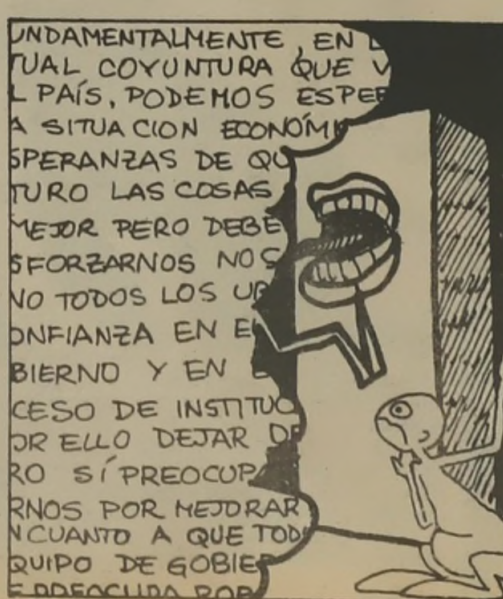 UNDAMENTALMENTE, EN L
TUAL COYUNTURA QUE V
L PAÍS, PODEMOS ESPER
A SITUACION ECONÓMI
SPERANZAS DE QU
TURO LAS COSAS
MEJOR PERO DEBE
SFORZARNOS NOS
NO TODOS LOS UR
ONFIANZA EN EL
BIERNO Y EN E
CESO DE INSTITUC
OR ELLO DEJAR DE
RO SÍ PREOCUPA
RNOS POR MEJORAR
N CUANTO A QUE TOD
QUIPO DE GOBIER
E PREOCUPA POR